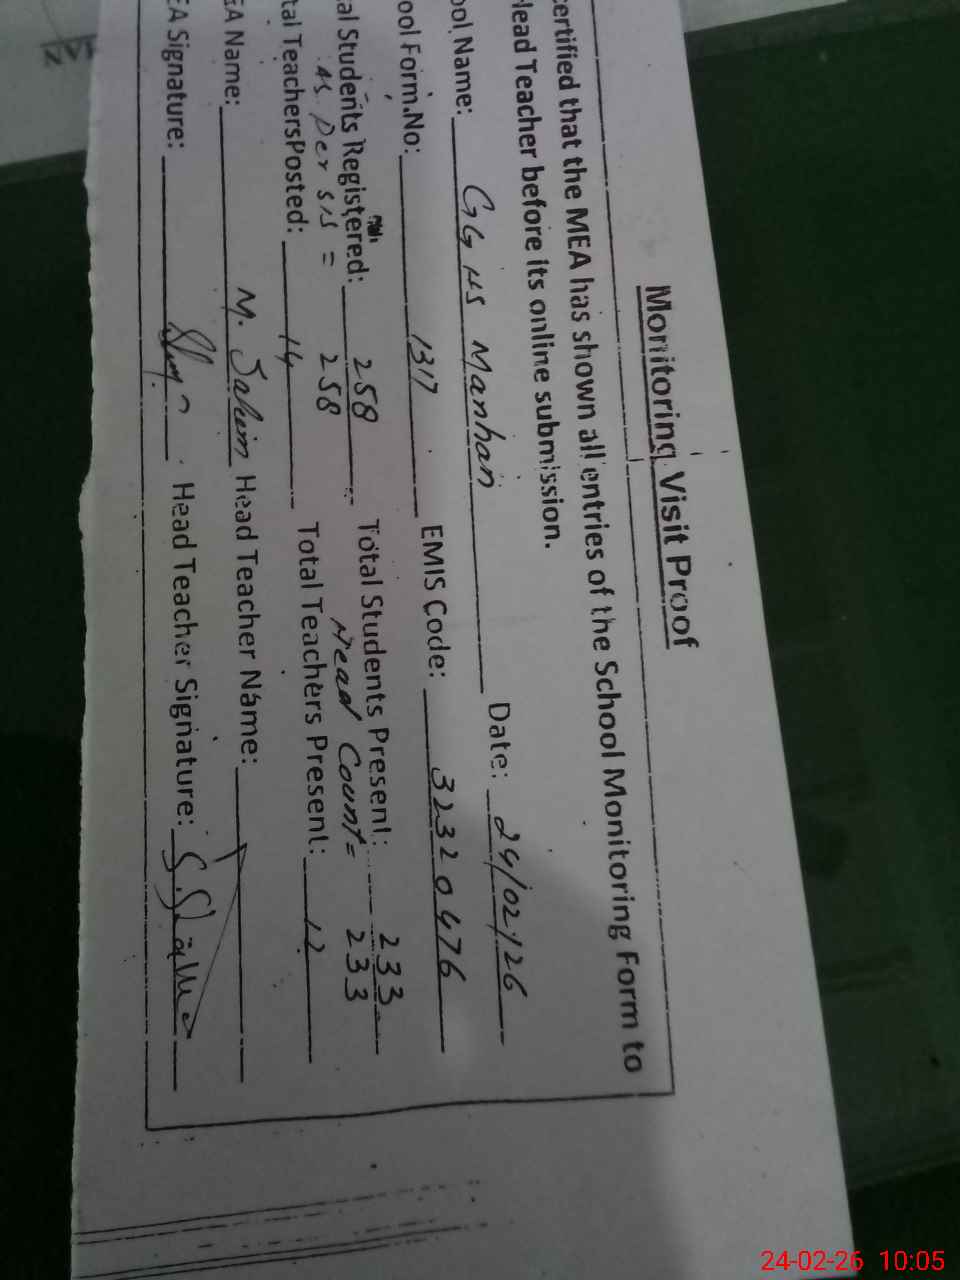 Monitoring Visit Proof
certified that the MEA has shown all entries of the School Monitoring Form to
Head Teacher before its online submission.
ool Name: GGHS Manhan Date: 24/02/26
ool Form.No: 1317 EMIS Code: 32320476
al Students Registered: 258 Total Students Present: 233
As per sis = 258 Head Count = 233
tal TeachersPosted: 14 Total Teachers Present: 12
EA Name: M. Salim Head Teacher Name:
EA Signature: Head Teacher Signature:
24-02-26 10:05